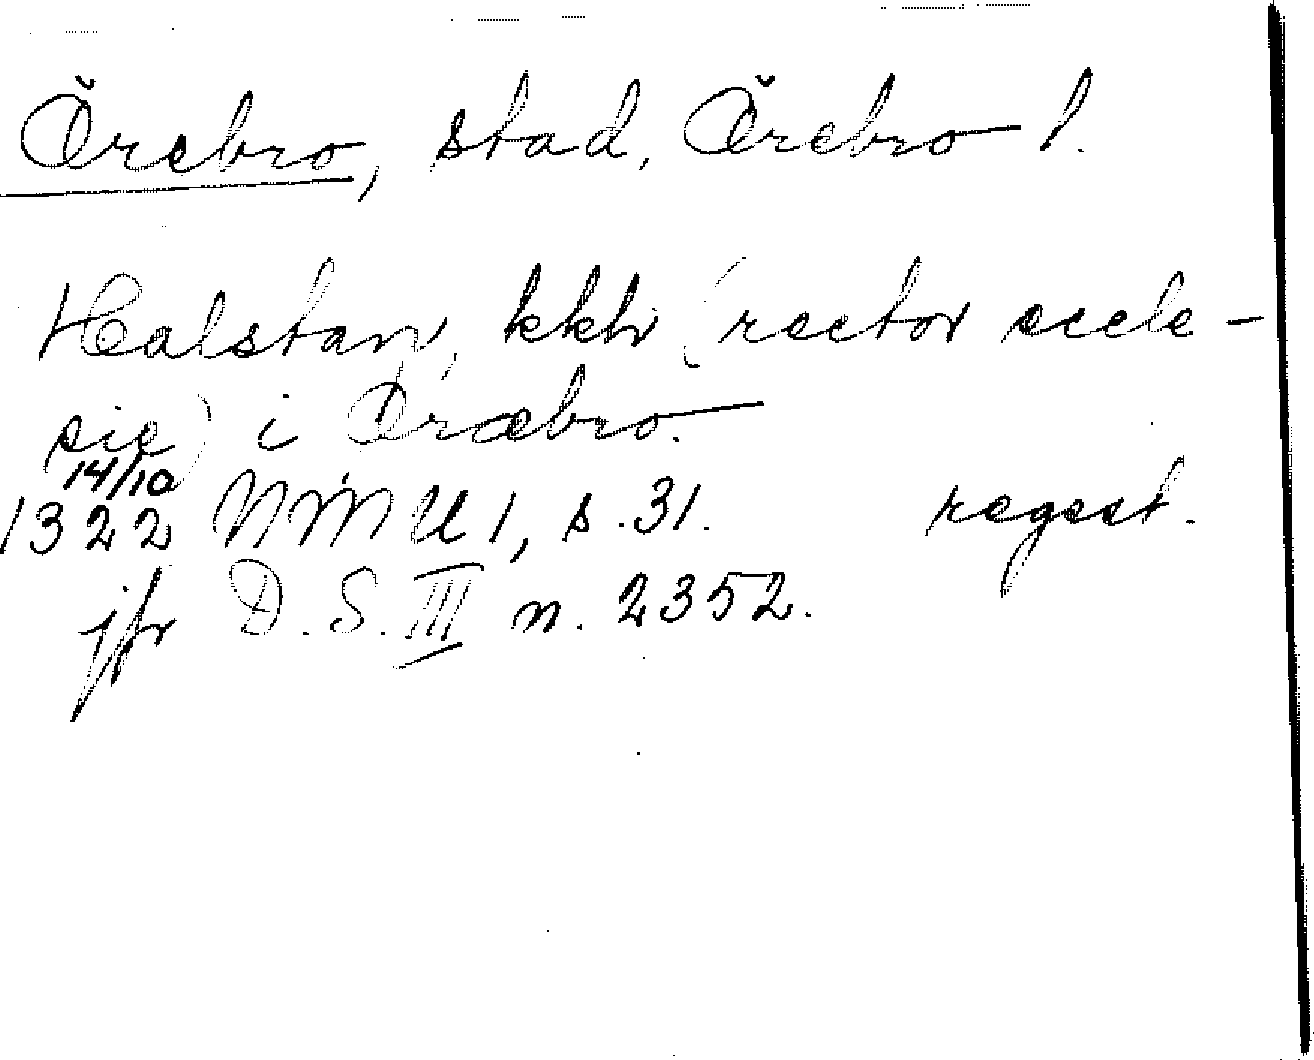 Örebro, stad, Örebro l.
Halstan, kkh (rector eccle-
sie) i Øræbro.
14/10
1322 NMU 1, s. 31. regest.
jfr D.S. III n. 2352.